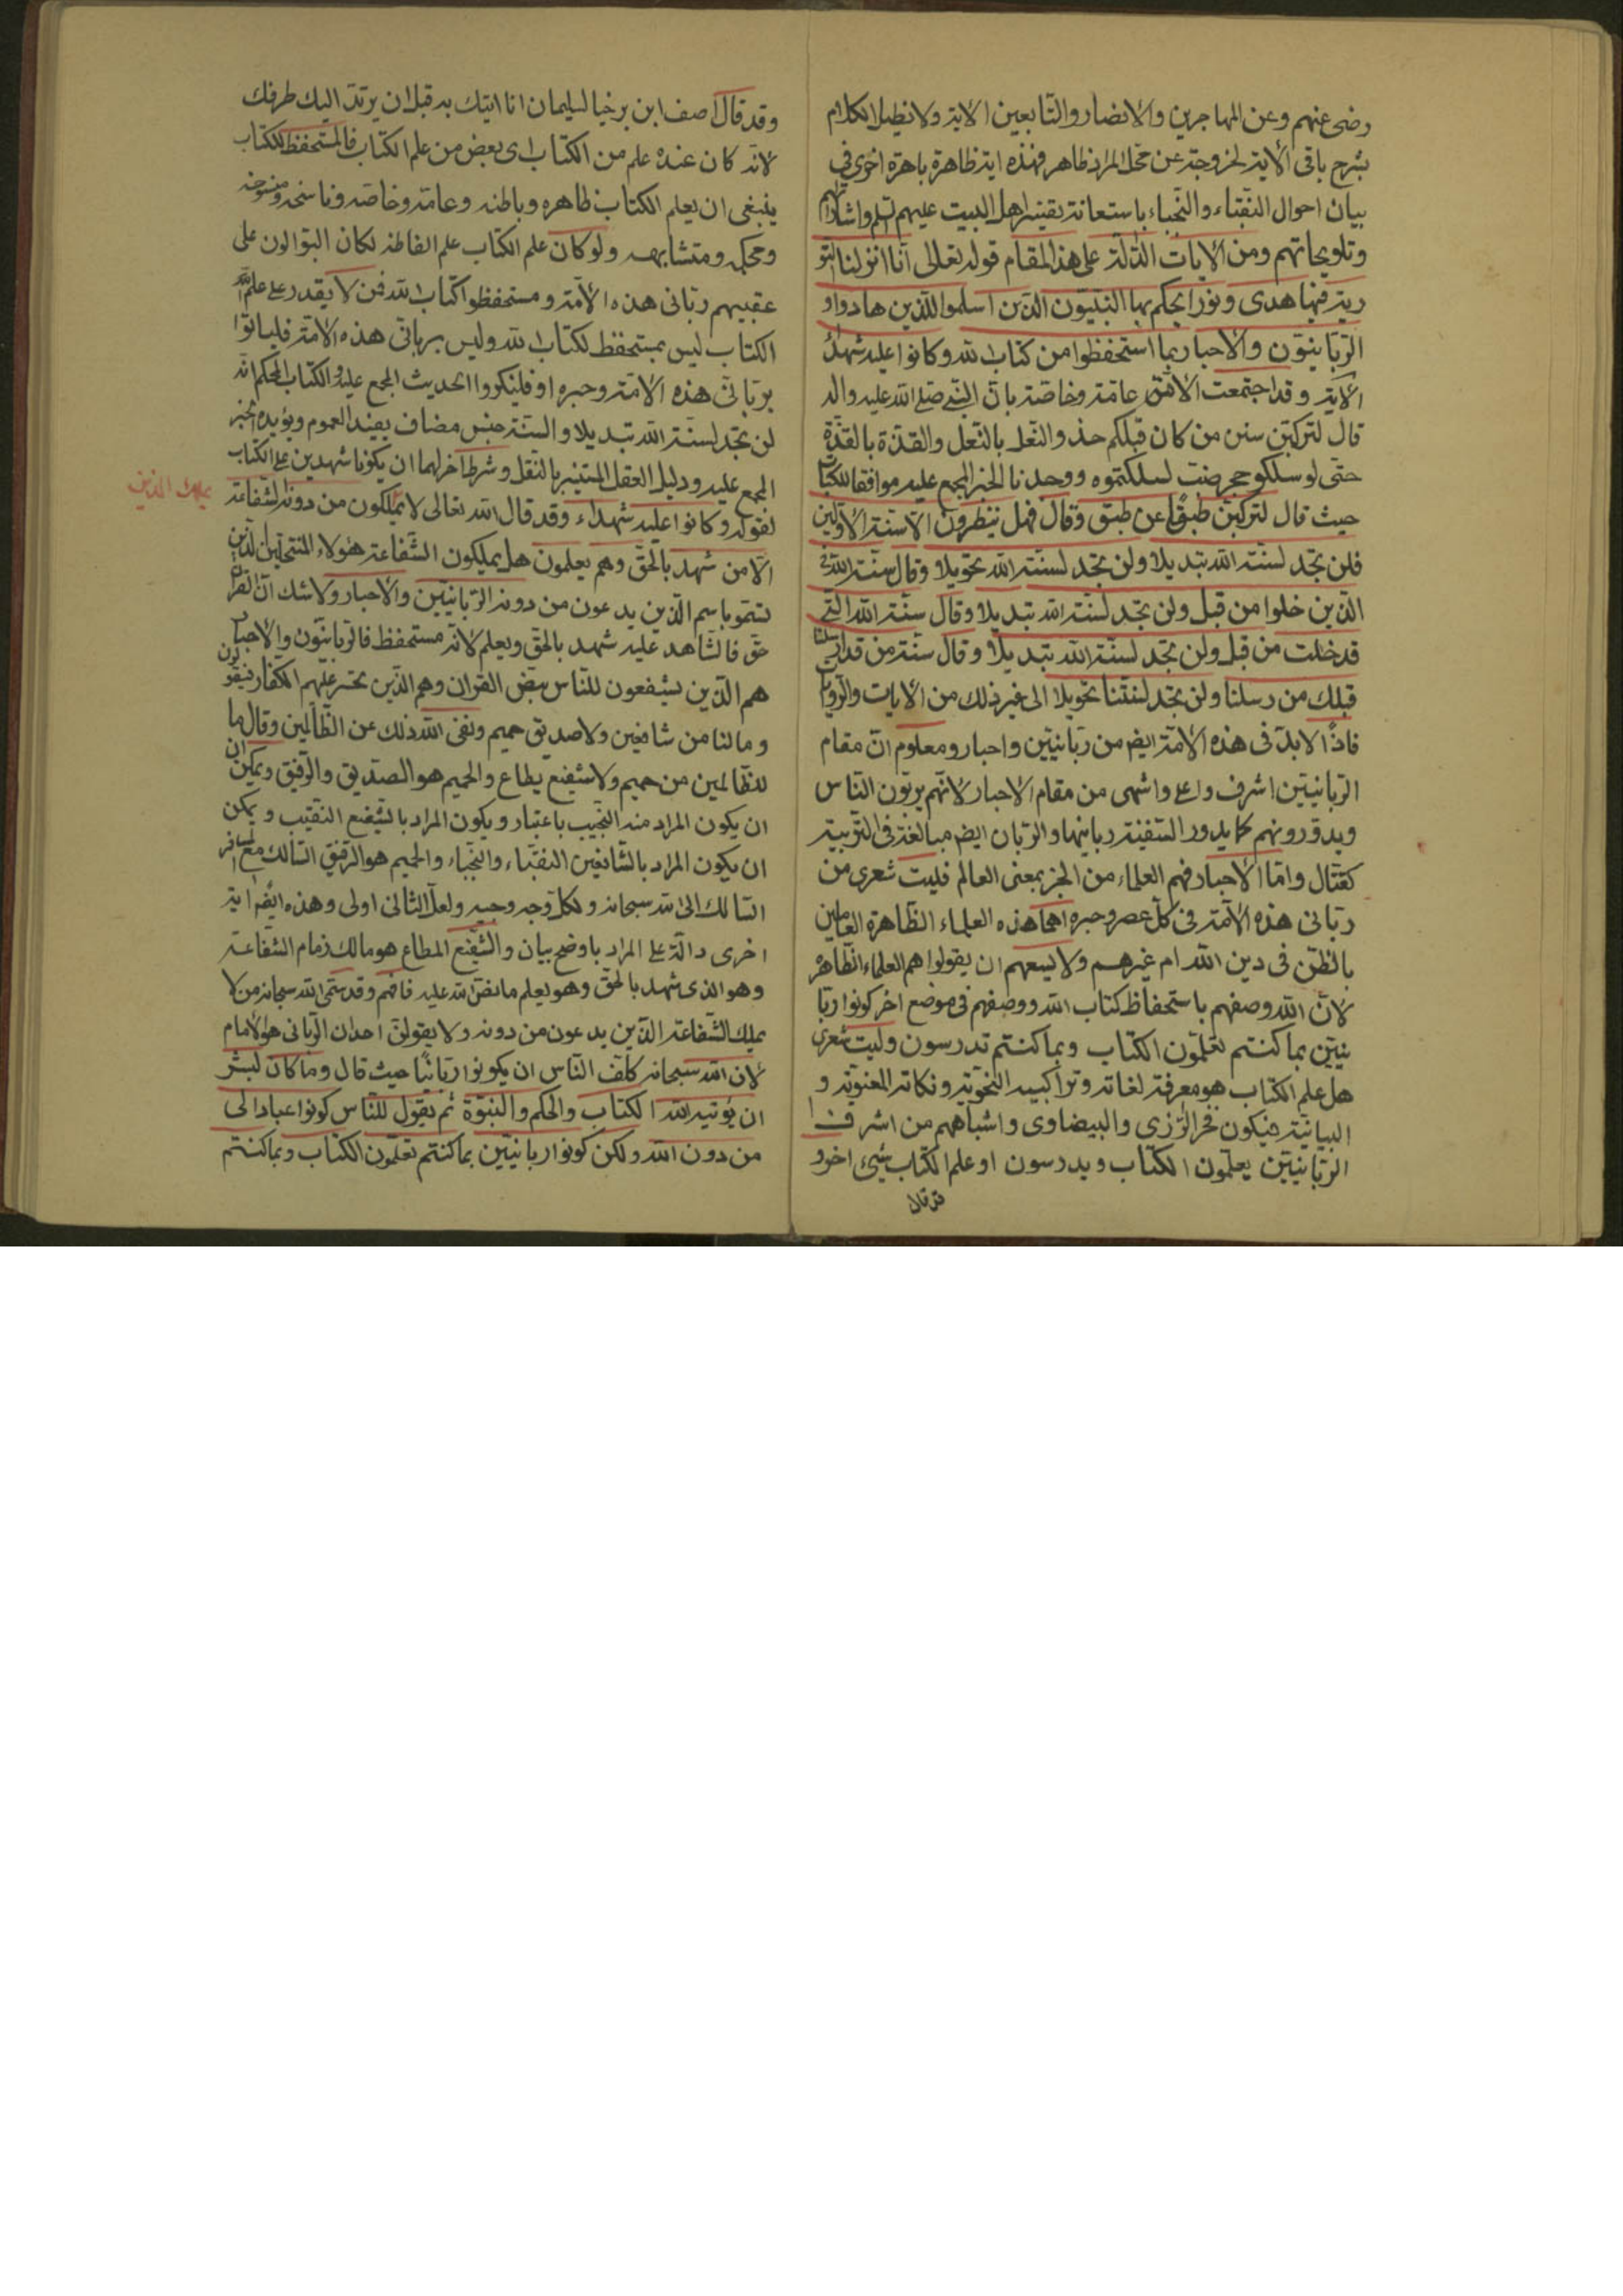 رضى عنهم وعن المهاجرين والانصار والتابعين الاية ولا نطيل الكلام
بشرح باقى الاية لخروجة عن محل المراد ظاهر فهذه اية ظاهرة باهرة اخرى في
بيان احوال النقباء والنجباء باستعانة بقية اهل البيت عليهم السلم واشاراتهم
وتلويحاتهم ومن الايات الدالة على هذا المقام قوله تعالى انا انزلنا التو
رية فيها هدى ونورا يحكم بها النبيون الذين اسلموا للذين هادوا و
الربانيون والاحبار بما استحفظوا من كتاب الله وكانوا عليه شهداء
الاية وقد اجتمعت الامة عامة وخاصة بان النبي صلى الله عليه واله
قال لتركبن سنن من كان قبلكم حذو النعل بالنعل والقذة بالقذة
حتى لو سلكو حجر ضب لسلكتموه ووجدنا الخبر المجمع عليه موافقا للكتاب
حيث قال لتركبن طبقًا عن طبق وقال فهل ينظرون الا سنة الاولين
فلن تجد لسنة الله تبديلا ولن تجد لسنة الله تحويلا وقال سنة الله في
الذين خلوا من قبل ولن تجد لسنة الله تبديلا وقال سنة الله التي
قد خلت من قبل ولن تجد لسنة الله تبديلا وقال سنة من قد ارسلنا
قبلك من رسلنا ولن تجد لسنتنا تحويلا الى غير ذلك من الايات والروايات
فاذًا لابد في هذه الامة ايضم من ربانيين واحبار ومعلوم ان مقام
الربانيين اشرف واعلى واشهى من مقام الاحبار لانهم يربون الناس
ويدورونهم كما يدور السفينة ربانيها والربان ايضم مبالغة في التربية
كفتال واما الاحبار فهم العلماء من الحبر بمعنى العالم فليت شعرى من
ربانى هذه الامة في كل عصر وحبره اهما هذه العلماء الظاهرة العاملين
بالظن في دين الله ام غيرهم ولا يسعهم ان يقولوا هم العلماء الظاهرة
لان الله وصفهم باستحفاظ كتاب الله ووصفهم في موضع اخر كونوا ربا
نيين بما كنتم تعلمون الكتاب وبما كنتم تدرسون وليت شعرى
هل علم الكتاب هو معرفة لغاته وتراكيبه النحوية ونكاته المعنوية و
البيانية فيكون فخر الرزى والبيضاوى واشباههم من اشرف
الربانيين يعلمون الكتاب ويدرسون او علم الكتاب شيء اخر و
قد قال
وقد قال آصف ابن برخيا لسليمان انا اتيك به قبل ان يرتد اليك طرفك
لانه كان عنده علم من الكتاب اى بعض من علم الكتاب فالمستحفظ للكتاب
ينبغى ان يعلم الكتاب ظاهره وباطنه وعامة وخاصه وناسخه ومنسوخه
ومحكمه ومتشابهه ولو كان علم الكتاب علم الفاظه لكان البوالون على
عقبيهم ربانى هذه الامة ومستحفظوا كتاب الله فمن لا يقدر على علم
الكتاب ليس بمستحفظ لكتاب الله وليس بربانى هذه الامة فلياتوا
بربانى هذه الامة وحبره او فلينكروا الحديث المجمع عليه والكتاب المحكم انه
لن تجد لسنة الله تبديلا والسنة جنس مضاف يفيد العموم ويؤيده الخبر
المجمع عليه ودليل العقل المستنير بالنقل وشرط اخر لهما ان يكونا شهدين على الكتاب
لقوله وكانوا عليه شهداء وقد قال الله تعالى لا يملكون من دونه الشفاعة
يملك الذين
الا من شهد بالحق وهم يعلمون هل يمليكون الشفاعة هؤلاء المنتحلين الذين
تسموا باسم الذين يدعون من دونه الربانيين والاحبار ولا شك ان القران
حق فالشاهد عليه شهد بالحق ويعلم لانه مستحفظ فالربانيون والاحبار
هم الذين يشفعون للناس بنص القران وهم الذين تحسر عليهم الكفار فيقولون
وما لنا من شافعين ولا صديق حميم ونفى الله ذلك عن الظالمين وقال ما
للظالمين من حميم ولا شفيع يطاع والحميم هو الصديق والرفيق ويمكن ان
ان يكون المراد منه النجيب باعتبار ويكون المراد بالشفيع النقيب ويمكن
ان يكون المراد بالشافعين النقباء والنجباء والحميم هو الرفيق السالك مع المسافر
السالك الى الله سبحانه ولكل وجه وجيه ولعل الثانى اولى وهذه ايضم اية
اخرى دالة على المراد باوضح بيان والشفيع المطاع هو مالك زمام الشفاعة
وهو الذى شهد بالحق وهو يعلم ما نص الله عليه فافهم وقد سمى الله سبحانه من لا
يملك الشفاعة الذين يدعون من دونه ولا يقولن احد ان الربانى هو الامام
لان الله سبحانه كلف الناس ان يكونوا ربانيًا حيث قال وما كان لبشر
ان يؤتيه الله الكتاب والحكم والنبوة ثم يقول للناس كونوا عبادا لى
من دون الله ولكن كونوا ربانيين بما كنتم تعلمون الكتاب وبما كنتم